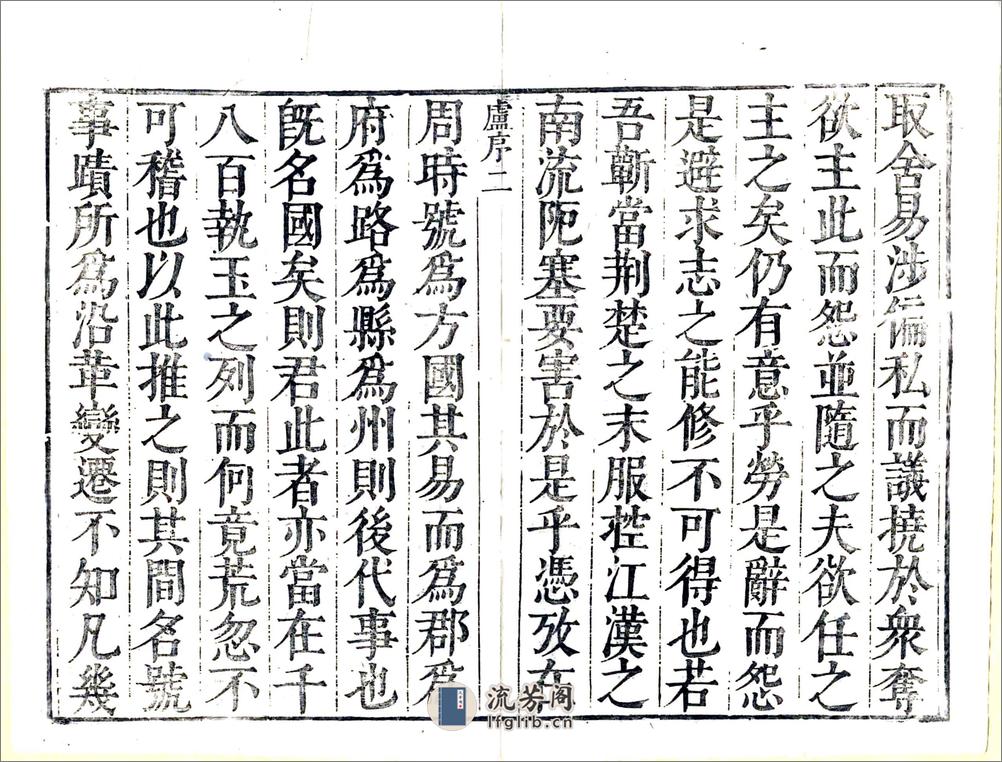 取舍易涉徧私而議撓於衆奪
欲主此而怨並隨之夫欲任之
主之矣仍有意乎勞是辭而怨
是避求志之能修不可得也若
吾蘄當荆楚之末服控江漢之
南流阨塞要害於是乎憑攷在
盧序二
周時號爲方國其易而爲郡爲
府爲路爲縣爲州則後代事也
旣名國矣則君此者亦當在千
八百執玉之列而何竟荒忽不
可稽也以此推之則其間名號
事蹟所爲沿革變遷不知凡幾
流芳阁
lfglib.cn